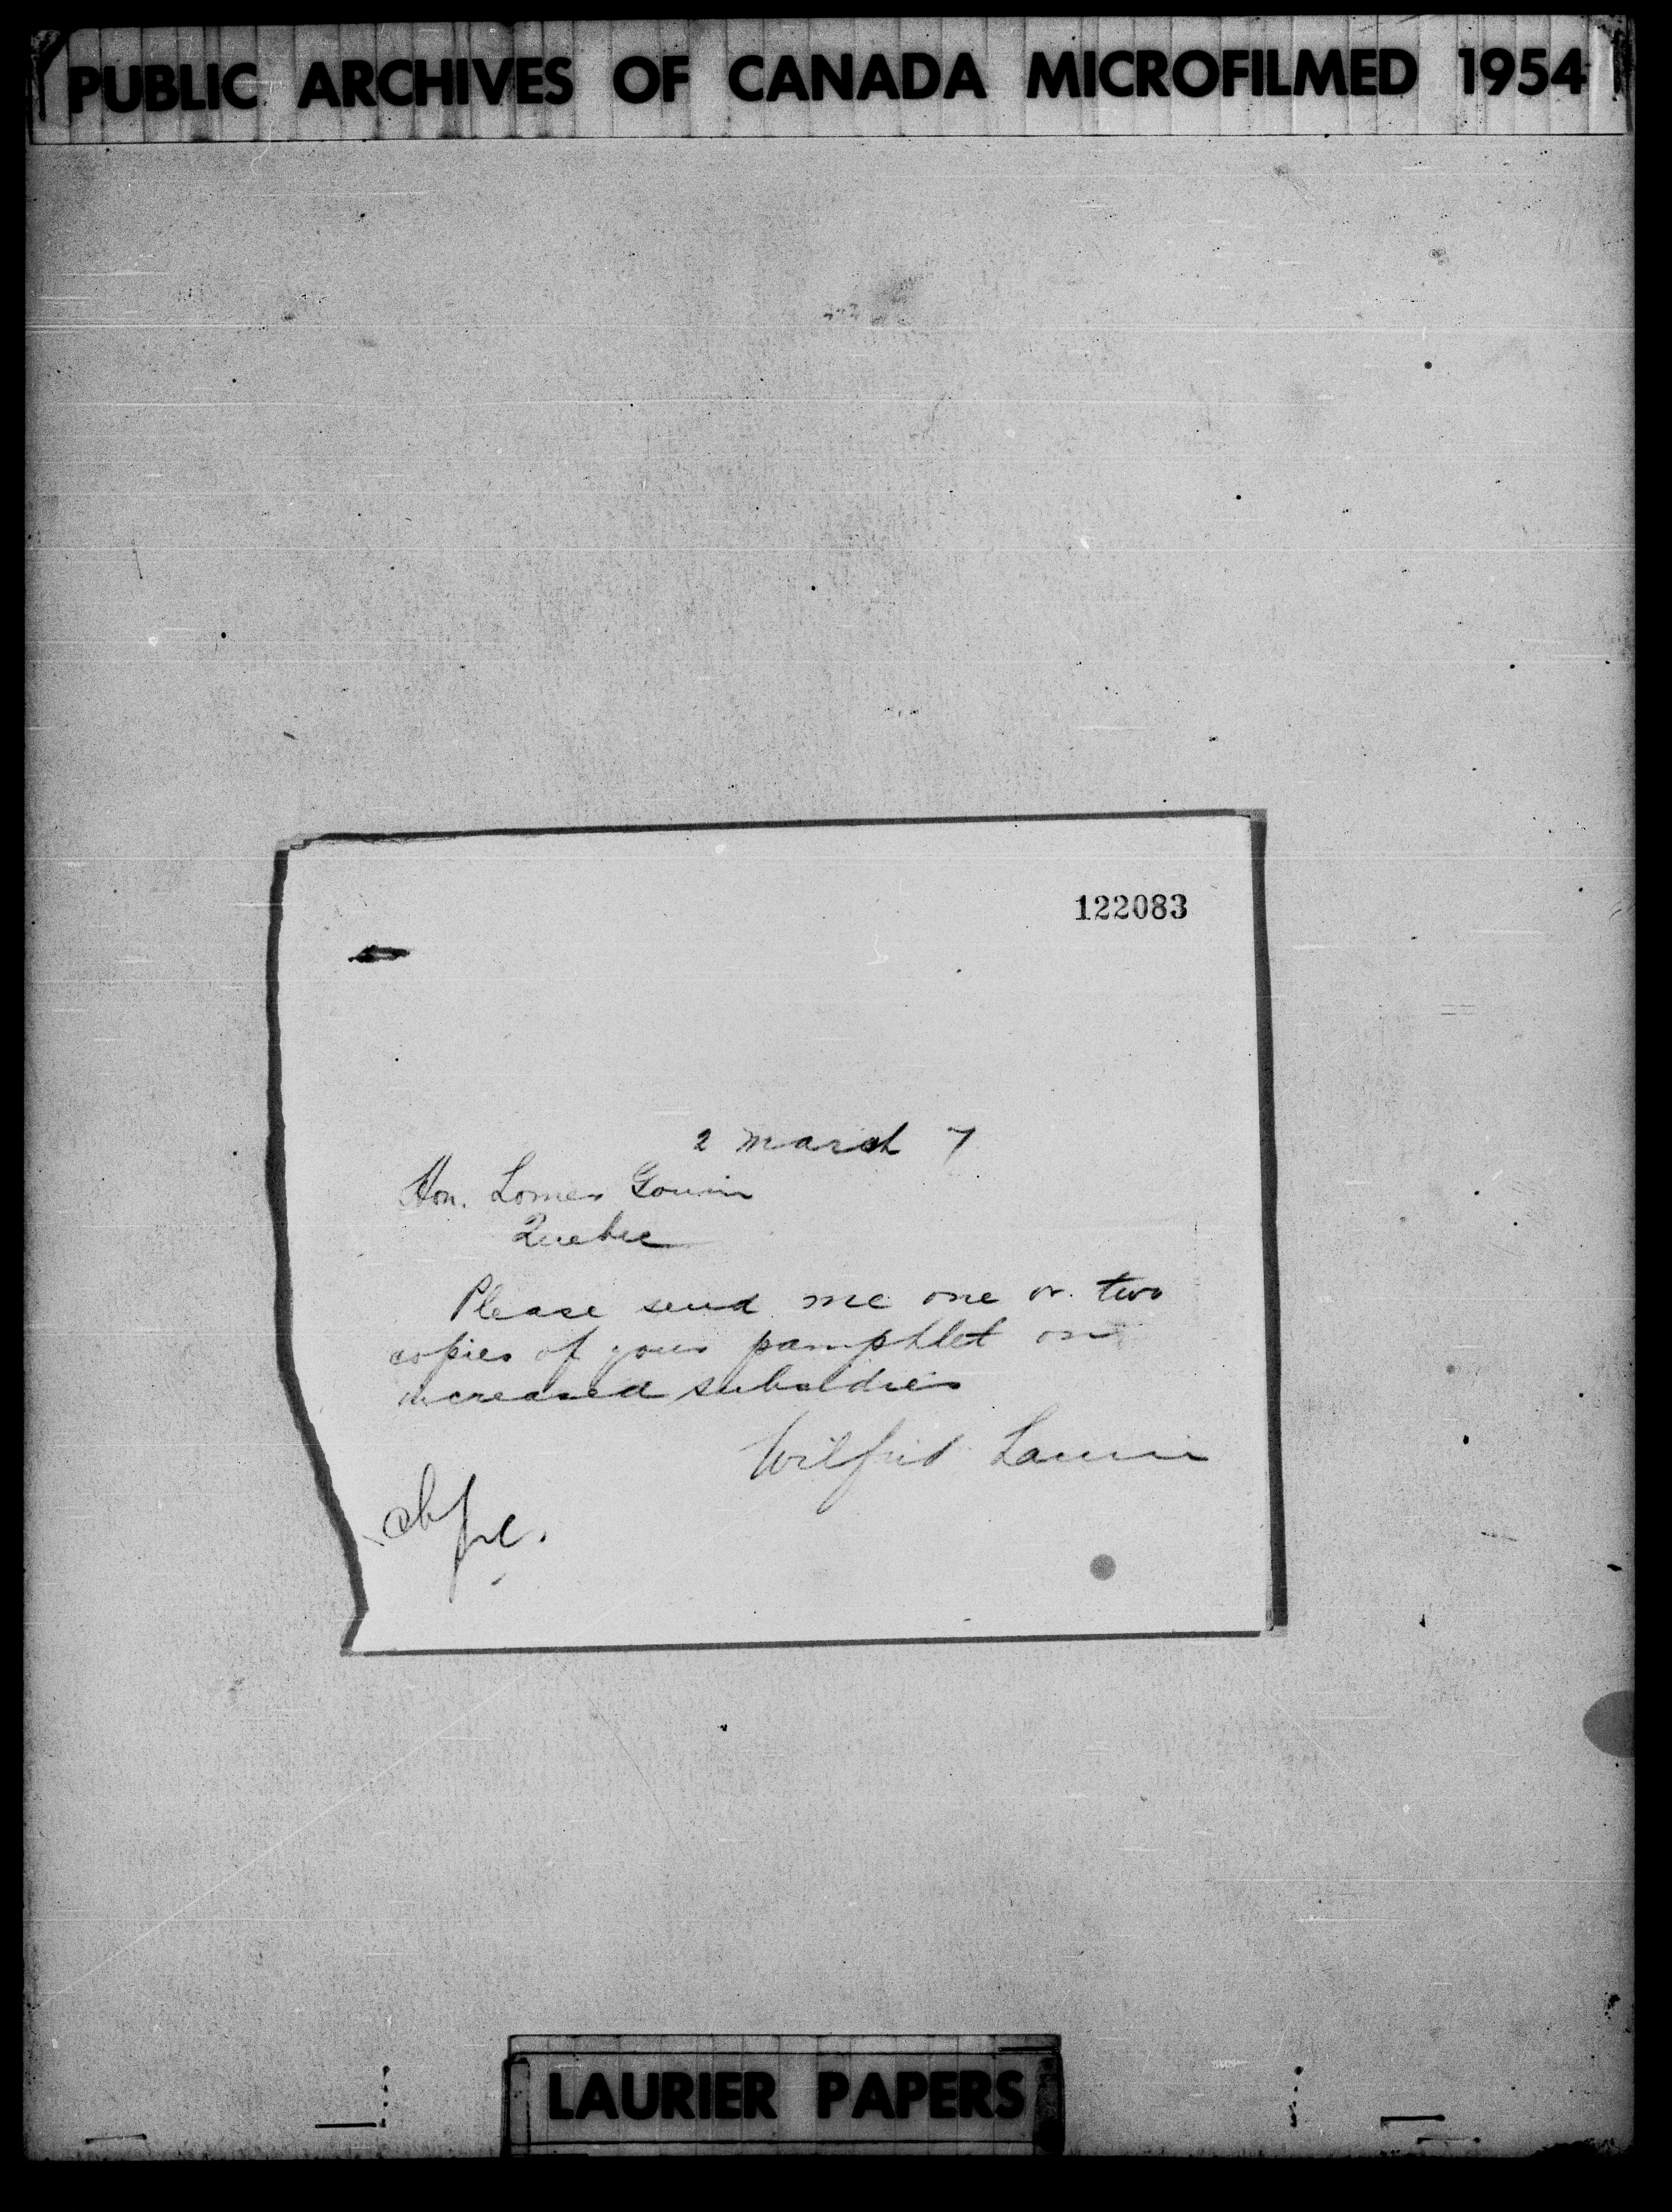 PUBLIC ARCHIVES OF CANADA MICROFILMED 1954
122083
2 March 7
Hon. Lomer Gouin
Quebec
Please send me one or two
copies of your pamphlet on
increased subsidies
Wilfrid Laurier
LAURIER PAPERS